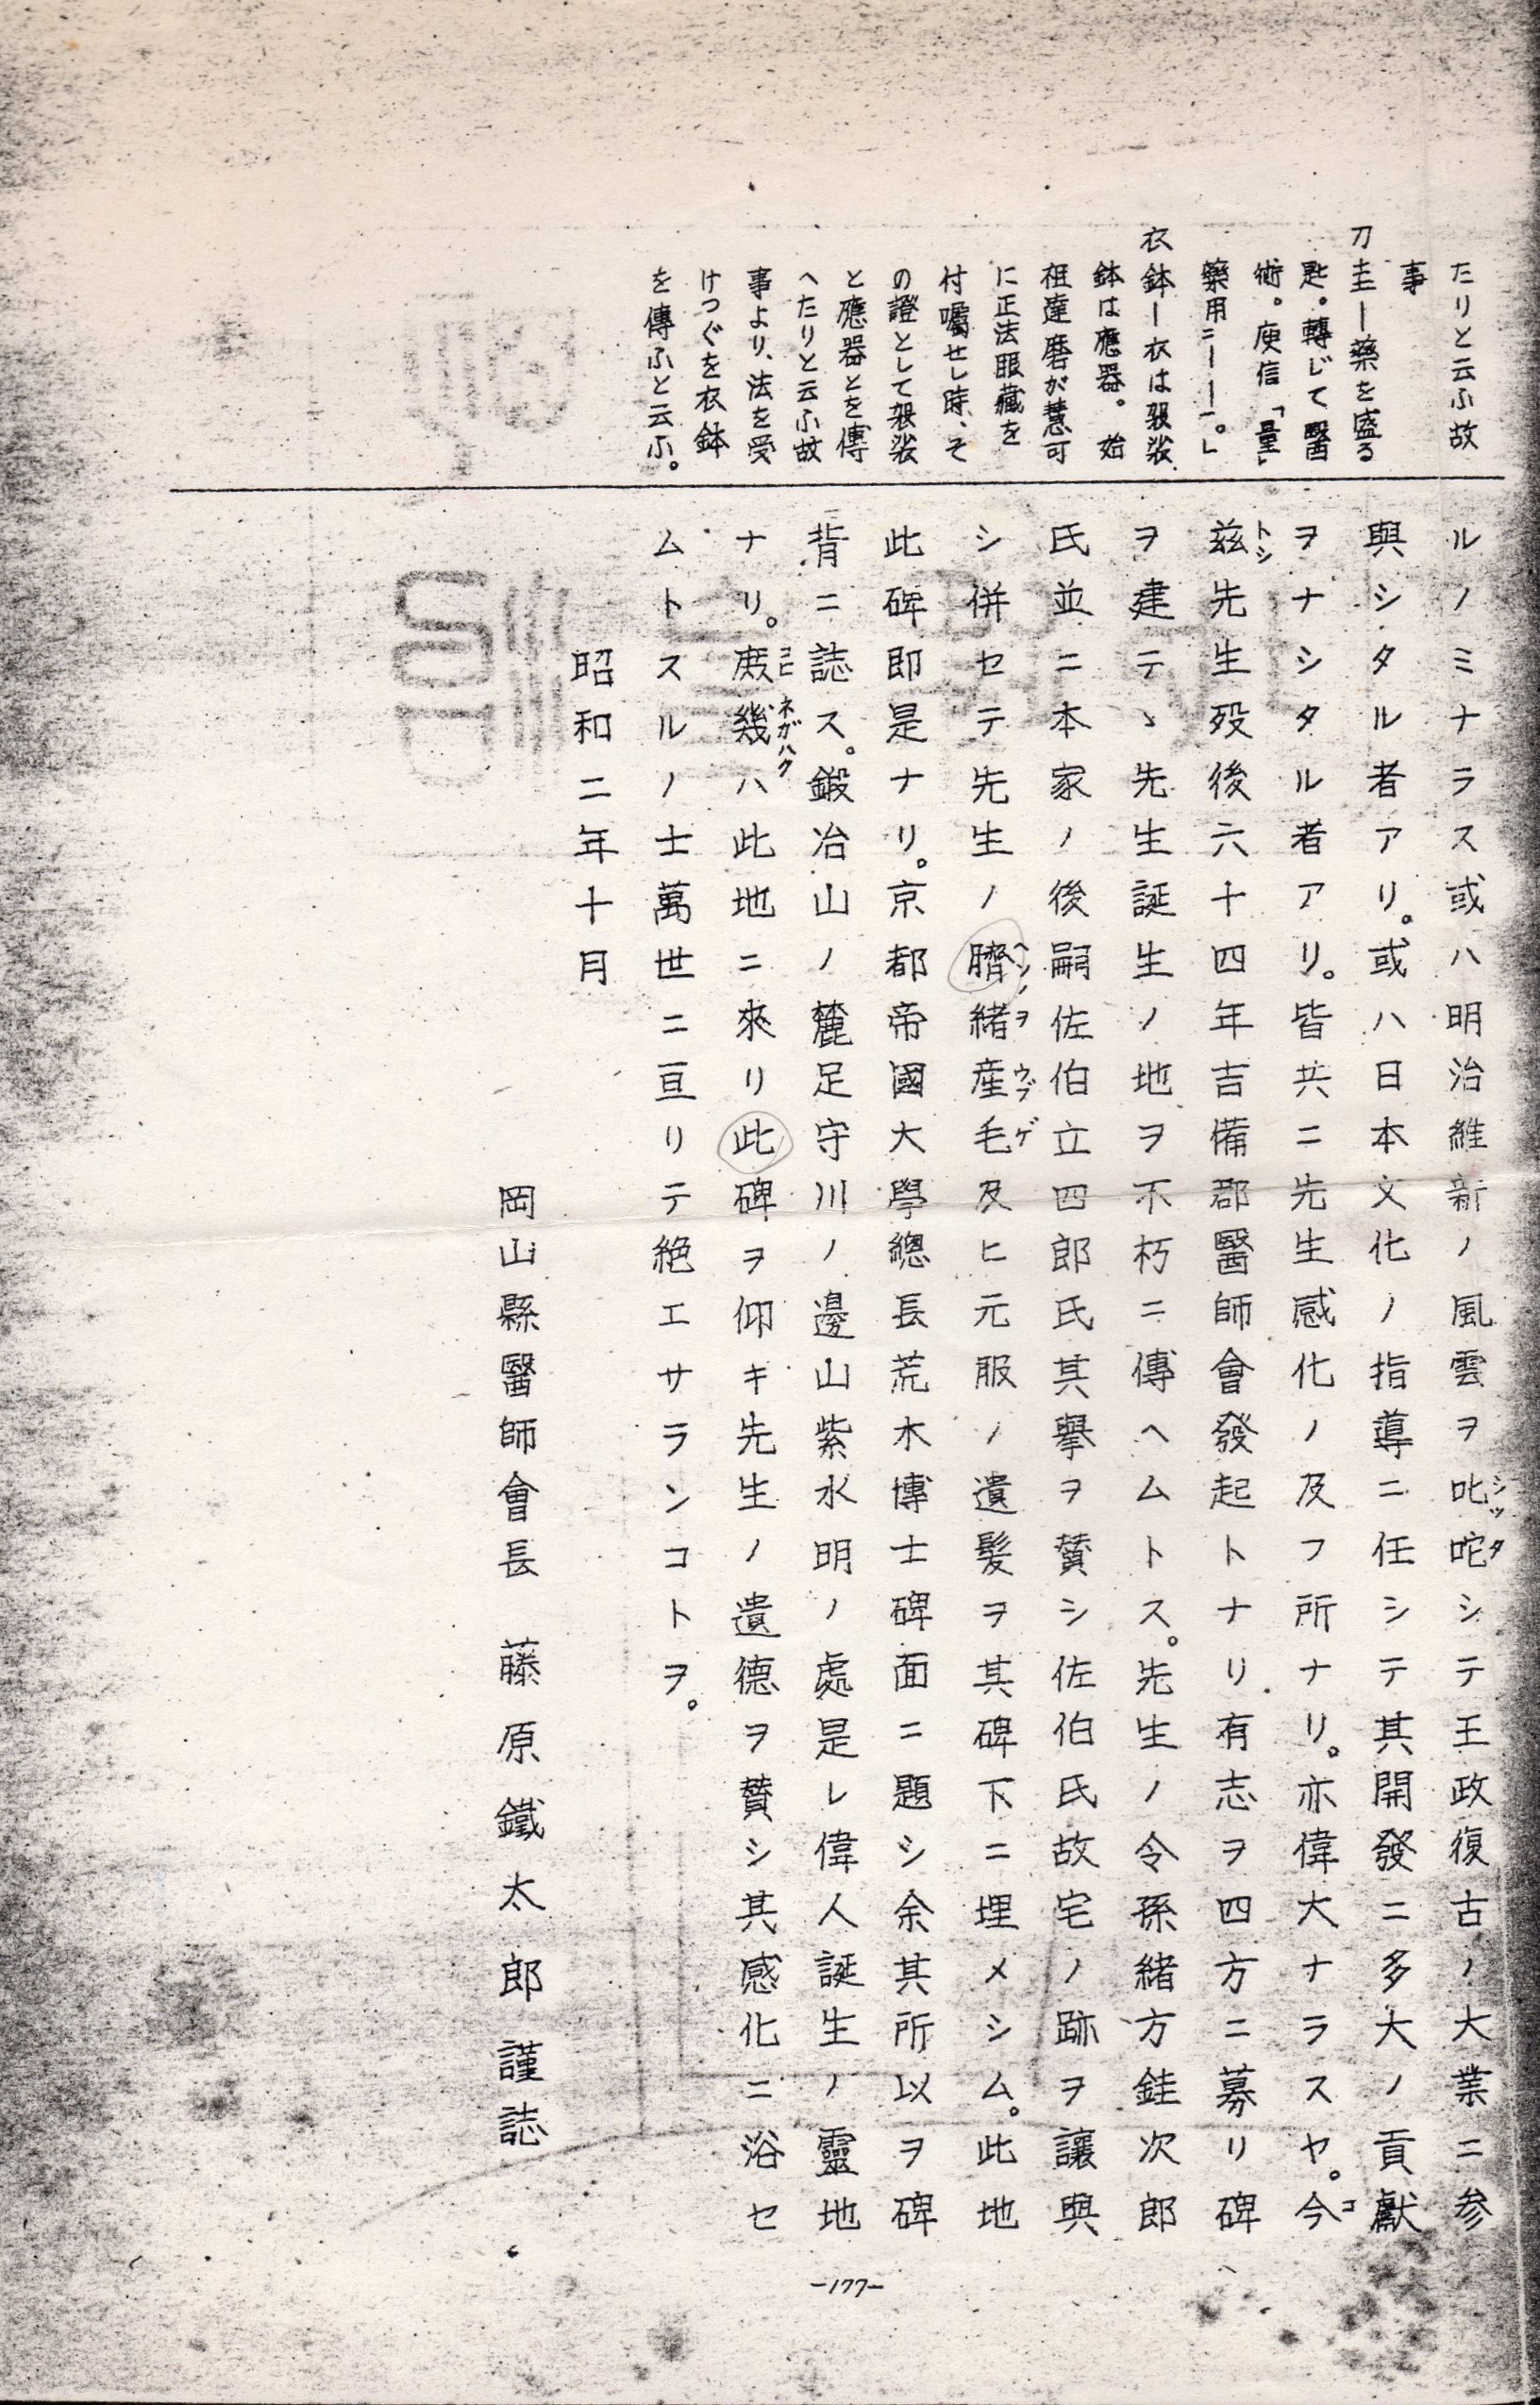 たりと云ふ故
事
刀圭ー藥を盛る
匙。轉じて醫
術。庾信「量」
藥用ニーーー。」
衣鉢ー衣は袈裟、
鉢は應器。始
祖達磨が慧可
に正法眼藏を
付囑せし時、そ
の證として袈裟
と應器とを傳
へたりと云ふ故
事より、法を受
けつぐを衣鉢
を傳ふと云ふ。
ルノミナラス或ハ明治維新ノ風雲ヲ叱咤シテ王政復古ノ大業ニ参
シッタ
與シタル者アリ。或ハ日本文化ノ指導ニ任シテ其開發ニ多大ノ貢獻
ヲナシタル者アリ。皆共ニ先生感化ノ及フ所ナリ。亦偉大ナラスヤ。今
コ
トシ
玆先生歿後六十四年吉備郡醫師會發起トナリ有志ヲ四方ニ募リ碑
ヲ建テヽ先生誕生ノ地ヲ不朽ニ傳ヘムトス。先生ノ令孫緒方銈次郎
氏並ニ本家ノ後嗣佐伯立四郎氏其擧ヲ賛シ佐伯氏故宅ノ跡ヲ讓與
シ併セテ先生ノ臍緒産毛及ヒ元服ノ遺髪ヲ其碑下ニ埋メシム。此地
ヘソノヲウブゲ
此碑即是ナリ。京都帝國大學總長荒木博士碑面ニ題シ余其所以ヲ碑
背ニ誌ス。鍛冶山ノ麓足守川ノ邊山紫水明ノ處是レ偉人誕生ノ靈地
ナリ。庻幾ハ此地ニ來リ此碑ヲ仰キ先生ノ遺德ヲ賛シ其感化ニ浴セ
コヒネガハク
ムトスルノ士萬世ニ亘リテ絶エサランコトヲ。
昭和二年十月
岡山縣醫師會長　藤原鐵太郎謹誌
-177-